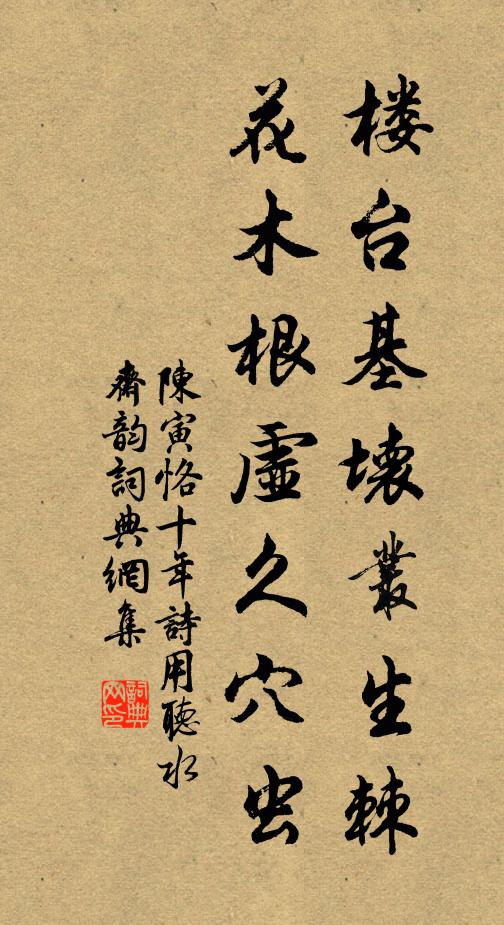 楼台基壊叢生棘
花木根虛久穴虫
陳寅恪十年詩用聽水
齋韵詞典網集
詞典
网印